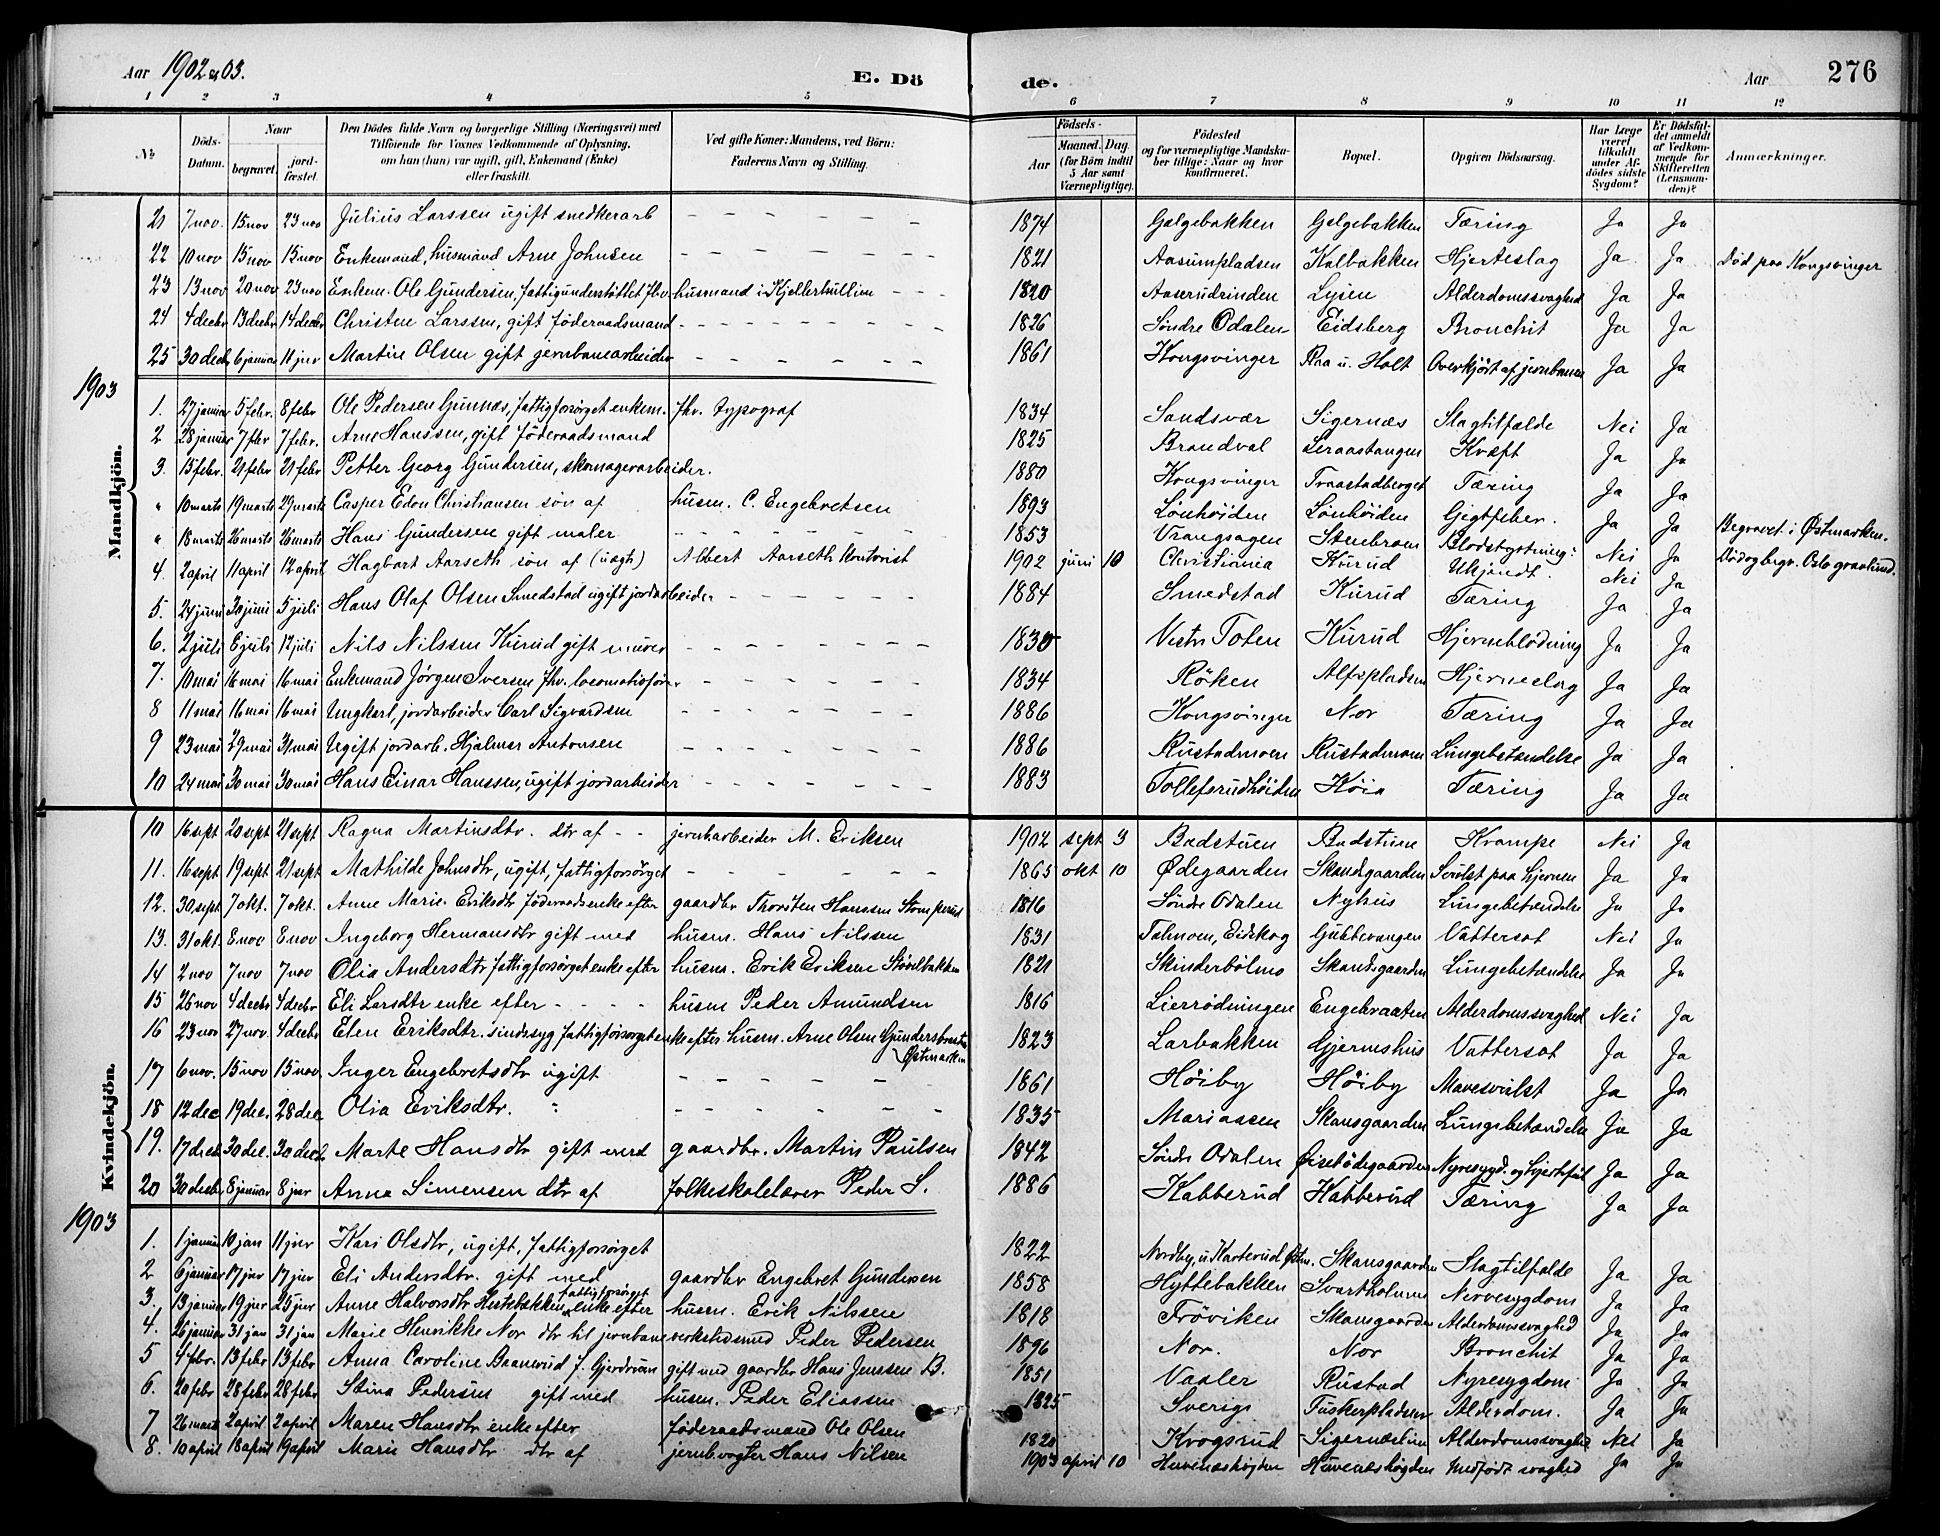 Aar 1902 og 03. E. Dö de. Aar 276
1 2 3 4 5 6 7 8 9 10 11 12
No Döds-Datum. Naar begravet. jord-fæstet. Den Dödes fulde Navn og borgerlige Stilling (Næringsvei) med Tilföiende for Voxnes Vedkommende af Oplysning, om han (hun) var ugift, gift, Enkemand (Enke) eller fraskilt. Ved gifte Koner: Mandens, ved Börn: Faderens Navn og Stilling. Födsels- Aar Maaned. Dag. (for Börn indtil 5 Aar samt Værnepligtige). Födested og for værnepligtige Mandskaber tillige: Naar og hvor konfirmeret. Bopæl. Opgiven Dödsaarsag. Har Læge været tilkaldt under Afdödes sidste Sygdom? Er Dödsfaldet anmeldt af Vedkommende for Skifteretten (Lensmanden)? Anmærkninger.
Mandkjön.
21 7 nov. 15 nov 23 nov Julius Larssen ugift snedkerarb 1874 Galgebakken Galgebakken Tæring Ja Ja
22 10 nov 15 nov 15 nov Enkemand, husmand Arne Johnsen 1821 Aasumpladsen Kalbakken Hjerteslag Ja Ja Död paa Kongsvinger
23 13 nov 20 nov 23 nov Enkem. Ole Gundersen, fattigunderstöttet fhv. husmand i Kjellerhullim 1820 Aaserudrinden Lysen Alderdomssvaghed Ja Ja
24 4 decbr 13 decbr 14 decbr Christen Larssen, gift föderaadsmand 1826 Söndre Odalen Eidsberg Bronchit Ja Ja
25 30 decb 6 januar 11 jnr Martin Olsen gift jernbanearbeider 1861 Kongsvinger Raa u. Holt Overkjört af jernbanen Ja Ja
1903
1. 27 januar 5 febr. 8 febr Ole Pedersen Gunnæs, fattigforsörget enkem. fhv. typograf 1834 Sandsvær Sigernæs Slagtilfælde Nei Ja
2 28 januar 7 febr 7 febr. Arne Hanssen, gift föderaadsmand 1825 Brandval Leraastangen Kræft Ja Ja
3. 15 febr. 21 febr 21 febr Petter Georg Gundersen, skomagerarbeider. 1880 Kongsvinger Traastadberget Tæring Ja Ja
" 10 marts 19 marts 29 marts Casper Edon Christiansen sön af husm. C. Engebretsen 1893 Lönhöiden Lönhöiden Gigtfeber. Ja Ja
" 18 marts 26 marts 26 marts Hans Gundersen gift maler 1853 Vrangsagen Stenbroen Blodstyrtning Nei Ja Begravet i Østmarken.
4. 2 april 11 april 12 april Hagbart Aarseth sön af (uægte) Albert Aarseth kontorist 1902 juni 10 Christiania Kurud Ukjendt. Nei Ja Död og begr. Oslo gravlund.
5. 24 juni 30 juni 5 juli Hans Olaf Olsen Smedstad ugift jordarbeider 1884 Smedstad Kurud Tæring Ja Ja
6. 2 juli 6 juli 12 juli Nils Nilssen Kurud gift murer 1830 Vestre Toten Kurud Hjerneblödning Ja Ja
7. 10 mai 16 mai 16 mai Enkemand Jörgen Iversen fhv. locomotivförer 1834 Röken Alfspladsen Hjerneslag Ja Ja
8 11 mai 16 mai 16 mai Ungkarl, jordarbeider Carl Sigvardsen 1886 Kongsvinger Nor Tæring Ja Ja
9 23 mai 29 mai 31 mai Ugift jordarb. Hjalmar Antonsen 1886 Rustadmoen Rustadmoen Lungebetændelse Ja Ja
10 24 mai 30 mai 30 mai Hans Einar Hanssen, ugift jordarbeider 1883 Tollefsrudhöiden Köia Tæring Ja Ja
Kvindekjön.
10 16 sept 20 sept 21 sept Ragna Martinsdtr. dtr af jernbarbeider M. Eriksen 1902 sept 3 Badstuen Badstuen Krampe Nei Ja
11. 16 sept 19 sept 21 sept Mathilde Johnsdtr, ugift, fattigforsörget 1865 okt 10 Ødegaarden Skandsgaarden Svulst paa hjernen Ja Ja
12. 30 sept 7 okt. 7 okt. Anne Marie Eriksdtr föderaadsenke efter gaardbr Thorsten Hanssen Stomperud 1816 Söndre Odalen Nyhus Lungebetændelse Ja Ja
13. 31 okt. 8 nov 8 nov Ingeborg Hermansdtr gift med husm. Hans Nilssen 1831 Talmoen, Eidskog Gubbevangen Vattersot Nei Ja
14 2 nov 7 nov 7 nov Olia Andersdtr fattigforsörget enke efter husm. Erik Eriksen Stövelbakken 1821 Skinderbölmo Skandsgaarden Lungebetændelse Ja Ja
15 26 nov 4 decbr 4 decbr Eli Larsdtr enke efter husm Peder Amundsen 1816 Lierrödningen Engebraaten Alderdomssvaghed Nei Ja
16 23 nov 27 nov. 4 decbr Elen Eriksdtr. sindssyg fattigforsörget enke efter husm. Arne Olsen Gundersbraaten Østmarken 1823 Larbakken Gjerneshus Vattersot Ja Ja
17 6 nov. 15 nov 15 nov Inger Engebretsdtr ugift 1861 Höiby Höiby Mavesvulst Ja Ja
18 12 dec 19 dec. 28 dec Olia Eriksdtr. " 1835 Mariaasen Skansgaarden Lungebetændelse Ja Ja
19. 17 decb 30 dec. 30 decb Marte Hansdtr gift med gaardbr. Martin Paulsen 1842 Söndre Odalen Øiseködegaarden Nyresygd. og hjertefeil Ja Ja
20 30 decbr 8 januar 8 jnr Anna Simensen dtr af folkeskolelærer Peder S. 1886 Kabberud Kabberud Tæring Ja Ja
1903
1. 1 januar 10 jan 11 jnr Kari Olsdtr, ugift, fattigforsörget 1822 Nordby, u. Karterud Østm. Skansgaarden Slagtilfælde Ja Ja
2 6 januar 17 jnr 17 jnr Eli Andersdtr. gift med gaardbr Engebret Gundersen 1858 Hyttebakken Svartholmen Nervesygdom Ja Ja
3. 13 januar 19 jnr 25 jnr Anne Halvorsdtr Hestebækken fattigforsörget enke efter husm. Erik Nilssen 1818 Fröviken Skansgaarden Alderdomssvaghed Ja Ja
4. 26 januar 31 jan 31 jan Marie Henrikke Nor dtr til jernbaneverkstedmd Peder Pedersen 1896 Nor. Nor Bronchit Ja Ja
5 4 febr. 13 febr 13 febr Anna Caroline Baanerud f. Gjerdrum gift med gaardbr Hans Jenssen B. 1851 Vaaler Rustad Nyresygdom Ja Ja
6. 20 febr 28 febr 28 febr Stina Pedersen gift med husm. Peder Eliassen 1825 Sverige Tuskerpladsen Alderdom. Ja Ja
7 26 marts 2 april 2 april Maren Hansdtr enke efter föderaadsmand Ole Olsen 1820 Krogsrud Sigernæslien Alderdomssvaghed Nei Ja
8. 10 april 18 april 19 april Marie Hansdtr dtr af jernb.vogter Hans Nilsen 1903 april 10 Huvenæshögden Huvenæshögden Medfödt svaghed Ja Ja